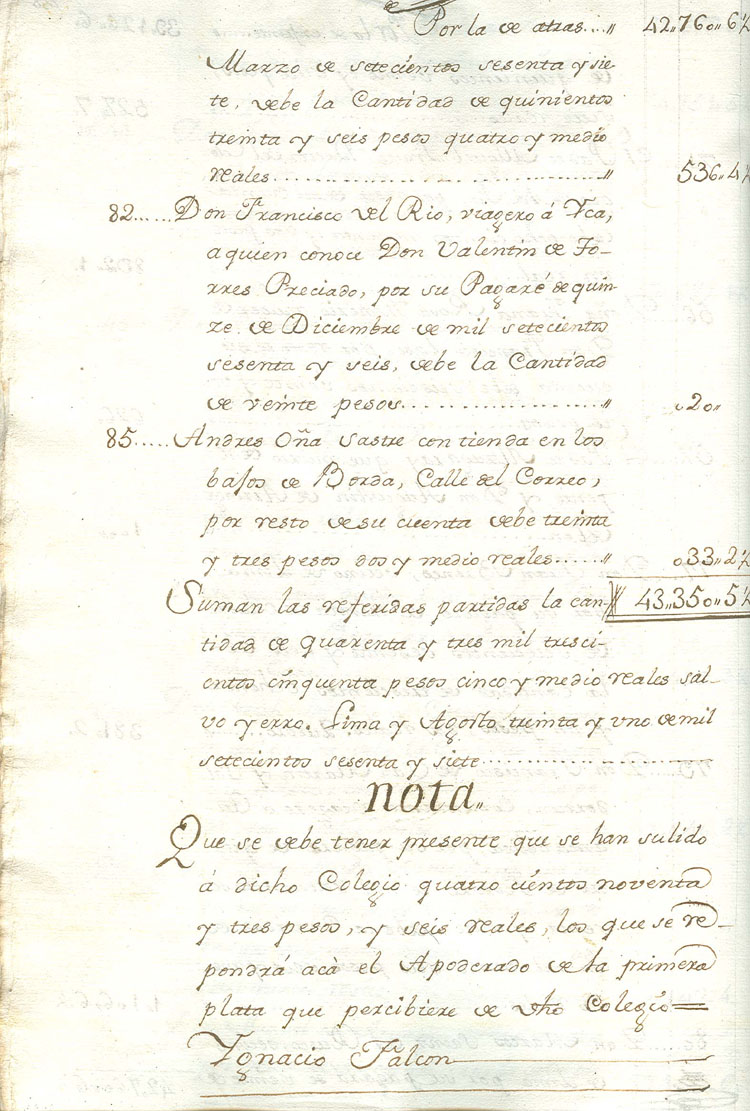 Por la de atras....〃 42„760„6½
Marzo de setecientos sesenta y sie-
te, debe la Cantidad de quinientos
treinta y seis pesos quatro y medio
reales..............................〃 536„4½
82.....Don Francisco del Rio, viagero á Yca,
a quien conoce Don Valentin de To-
rres Preciado, por su Pagaré de quin-
ze de Diciembre de mil setecientos
sesenta y seis, debe la Cantidad
de veinte pesos..................〃 020„
85.....Andres Oña Sastre con tienda en los
bajos de Borda, Calle del Correo,
por resto de su cuenta debe treinta
y tres pesos dos y medio reales.....〃 033„2½
Suman las referidas partidas la can- 43„350„5½
tidad de quarenta y tres mil tresci-
entos cinquenta pesos cinco y medio reales sal-
vo yerro. Lima y Agosto treinta y uno de mil
setecientos sesenta y siete..................
nota„
Que se debe tener presente que se han sulido
á dicho Colegio quatro cientos noventa
y tres pesos, y seis reales, los que se re-
pondrá acà el Apoderado de la primera
plata que percibiere de dho Colegio=
Ygnacio Falcon